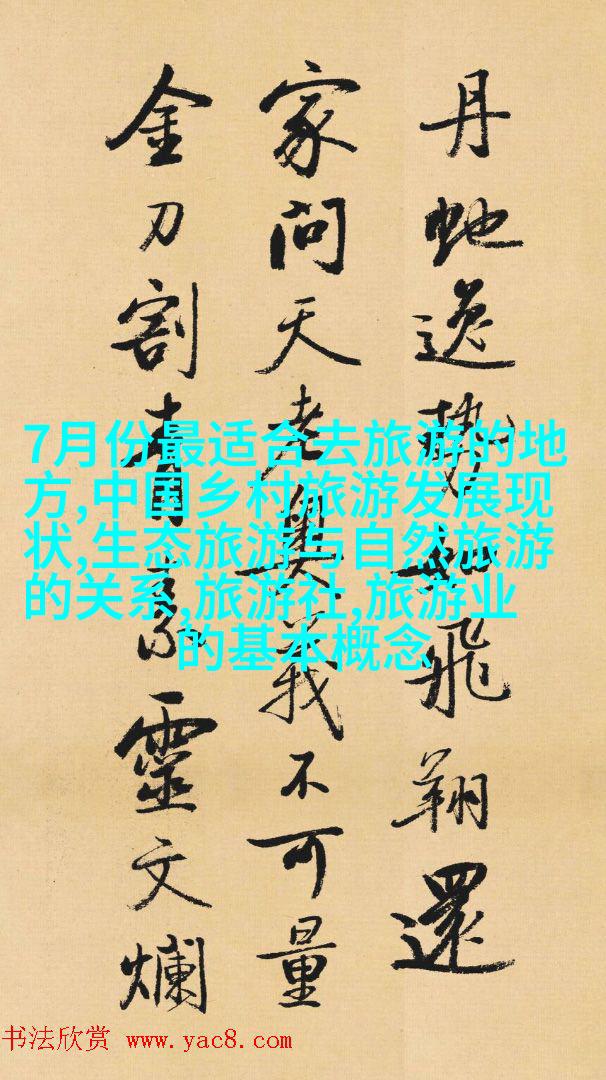 丹虵逸勢如飛翔還
家問天老奥義不可量
金刀割青素靈文爛
7月份最适合去旅游的地
方,中国乡村旅游发展现
状,生态旅游与自然旅游
的关系,旅游社,旅游业
的基本概念
书法欣赏 www.yac8.com